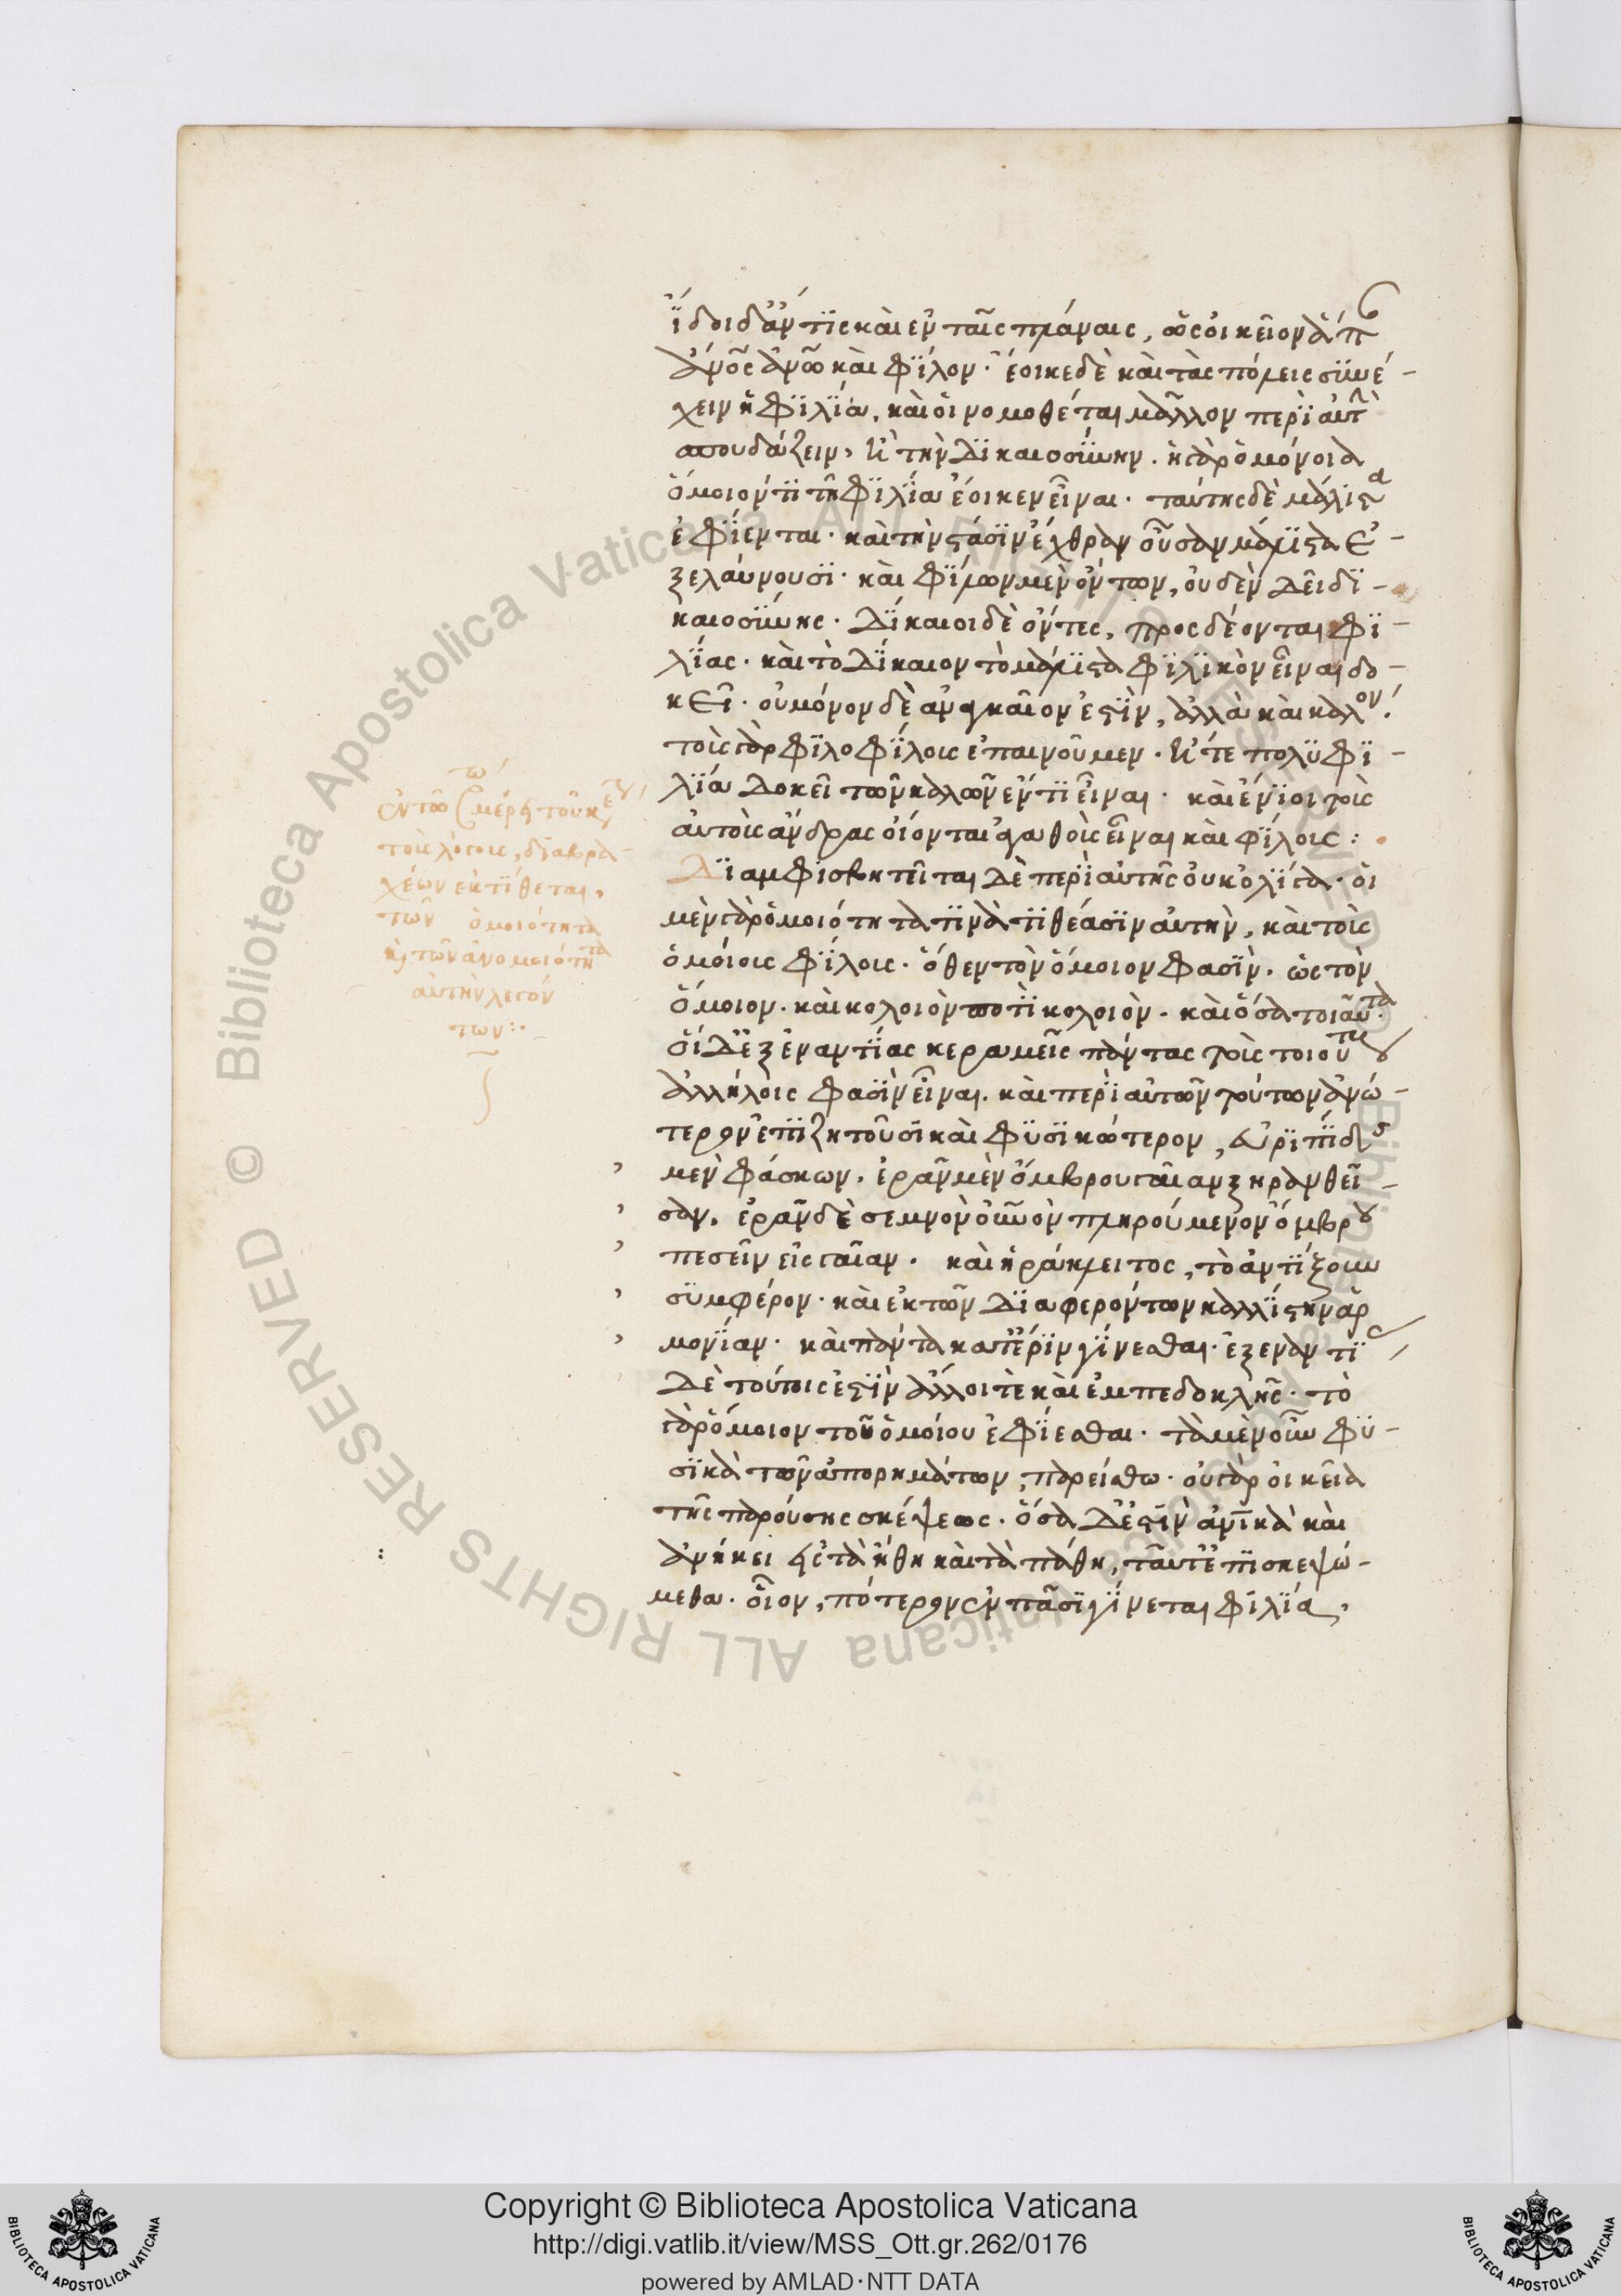 ἴδοι δ' ἄν τις καὶ ἐν ταῖς πλάναις, ὡς οἰκεῖον ἅπ
ἀνος ἀνω καὶ φίλον. ἔοικε δὲ καὶ τὰς πόλεις συνέ-
χειν ἡ φιλία. καὶ οἱ νομοθέται μᾶλλον περὶ αὐτ
σπουδάζειν, ἢ τὴν δικαιοσύνην. ἡ γὰρ ὁμόνοια
ὅμοιόν τι τῇ φιλία ἔοικεν εἶναι. ταύτης δὲ μάλιστα
ἐφίενται. καὶ τὴν στάσιν ἔχθραν οὖσαν μάλιστα ἐ-
ξελαύνουσι. καὶ φίλων μὲν ὄντων, οὐδὲν δεῖ δι-
καιοσύνης. δίκαιοι δὲ ὄντες, προσδέονται φι-
λίας. καὶ τὸ δίκαιον τὸ μάλιστα φιλικὸν εἶναι δο-
κεῖ. οὐ μόνον δὲ ἀναγκαῖον ἐστὶν, ἀλλὰ καὶ καλόν.
τοὺς γὰρ φιλοφίλους ἐπαινοῦμεν. ἥ τε πολυφι-
λία δοκεῖ τῶν καλῶν ἕν τι εἶναι. καὶ ἔνιοι τοὺς
αὐτοὺς ἄνδρας οἴονται ἀγαθοὺς εἶναι καὶ φίλους:
Διαμφισβητεῖται δὲ περὶ αὐτῆς οὐκ ὀλίγα. οἱ
μὲν γὰρ ὁμοιότητα τινὰ τιθέασιν αὐτὴν, καὶ τοὺς
ὁμοίους φίλους. ὅθεν τὸν ὅμοιον φασὶν. ὡς τὸν
ὅμοιον. καὶ κολοιὸν ποτὶ κολοιὸν. καὶ ὅσα τοιαῦτα.
οἱ δ' ἐξεναντίας κεραμεῖς πάντας τοὺς τοιούτους
ἀλλήλοις φασὶν εἶναι. καὶ περὶ αὐτῶν τούτων ἀνώ-
τερον ἐπιζητοῦσι καὶ φυσικώτερον, εὐριπίδης
μὲν φάσκων. ἐρᾶν μὲν ὄμβρου γαῖαν ξηρανθεῖ-
σαν. ἐρᾶν δὲ σεμνὸν οὐνὸν πληρούμενον ὄμβρου
πεσεῖν εἰς γαῖαν. καὶ ἡράκλειτος, τὸ ἀντίξουν
συμφέρον. καὶ ἐκ τῶν διαφερόντων καλλίστην ἁρ
μονίαν. καὶ πάντα κατ' ἔριν γίνεσθαι. ἐξεναντίας
δὲ τούτοις ἐστὶν ἄλλοι τὲ καὶ ἐμπεδοκλῆς. τὸ
γὰρ ὅμοιον τοῦ ὁμοίου ἐφίεσθαι. τὰ μὲν οὖν φυ-
σικὰ τῶν ἀπορημάτων, παρείσθω. οὐ γὰρ οἰκεῖα
τῆς παρούσης σκέψεως. ὅσα δ' ἐστὶν ἀνικὰ καὶ
ἀνήκει εἰς τὰ ἤθη καὶ τὰ πάθη, ταῦτ' ἐπισκεψώ-
μεθα. οἷον, πότερον ἐν πᾶσι γίνεται φιλία,
τοὺς λόγους, διαβρα-
χέων ἐκτίθεται,
τῶν ὁμοιότητα
κ τῶν ἀνομοιότητα
αὐτὴν λεγόν
των:.